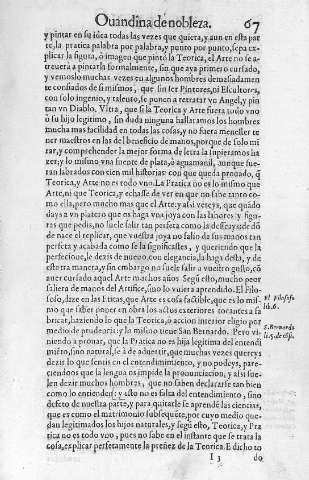 Quandina de nobleza. 67
y pintar en su idea todas las vezes que quiera, y aun en esta par
te, la pratica palabra por palabra, y punto por punto, sepa ex
plicar la figura, ò imagen que pintò la Teorica, el Arte no se a-
treuerà a pintarla formalmente, sin que aya primero cursado,
y vemoslo muchas vezes en algunos hombres demasiadamen
te confiados de si mismos, que sin ser Pintores, ni Escultores,
con solo ingenio, y talento, se ponen a retratar vn Angel, y pin
tan vn Diablo. Vltra, que si la Teorica y Arte fuera todo vno
ò su hijo legitimo, sin duda ninguna hallaramos los hombres
mucha mas facilidad en todas las cosas, y no fuera menester te
ner maestros en las del beneficio de manos, porque de solo mi
rar, y comprehender la mejor forma de letra la supieramos ha
zer; y lo mismo vna fuente de plata, ò aguamanil, aunque fue-
ran labrados con cien mil historias: con que queda prouado, q̃
Teorica, y Arte no es todo vno. La Pratica no es lo mismo que
Arte, ni que Teorica, y echasse de ver en que no sabe tanto co-
mo ella, pero mucho mas que el Arte: y assi vereys, que quãdo
days a vn platero que os haga vna joya con las labores y figu
ras que pedis, no suele salir tan perfeta como la desseays: de dõ
de nace el replicar, que vuestra joya no salio de sus manos tan
perfeta y acabada como se la significastes, y queriendo que la
perfecione, le dezis de nueuo, con elegancia, la haga desta, y de
estotra manera, y sin embargo no suele salir a vuestro gusto, cõ
auer cursado aquel Arte muchos años. Segũ esto, mucho peor
saliera de manos del Artifice, sino lo vuiera aprendido. El Filo-
sofo, dize en las Eticas, que Arte es cosa factible, que es lo mis-
mo que saber poner en obra los actos exteriores tocantes a fa
bricar, haziendo lo que la Teorica, ò accion interior eligio por
medio de prudencia: y lo mismo tiene San Bernardo. Pero vi-
niendo a prouar, que la Pratica no es hija legitima del entendi
miẽto, sino natural, se à de aduertir, que muchas vezes quereys
dezir lo que sentis en el entendimimiento, y no podeys, pare-
ciendoos que la lengua os impide la pronunciacion, y alsi sue-
len dezir muchos hombres, que no saben declararse tan bien
como lo entienden: y esto no es falta del entendimiento, sino
defeto de nuestra parte, y para quitarle se aprẽde las ciencias,
que es como el matrimonio subsequẽte, por cuyo medio que-
dan legitimados los hijos naturales, y segũ esto, Teorica, y Pra
tica no es todo vno, pues no sabe en el instante que se trata la
cosa, explicar perfetamente la preñez de la Teorica. E dicho to
El Filosofo
lib. 6.
S. Bernardo
li. 5. de cõsi.
I 3 do